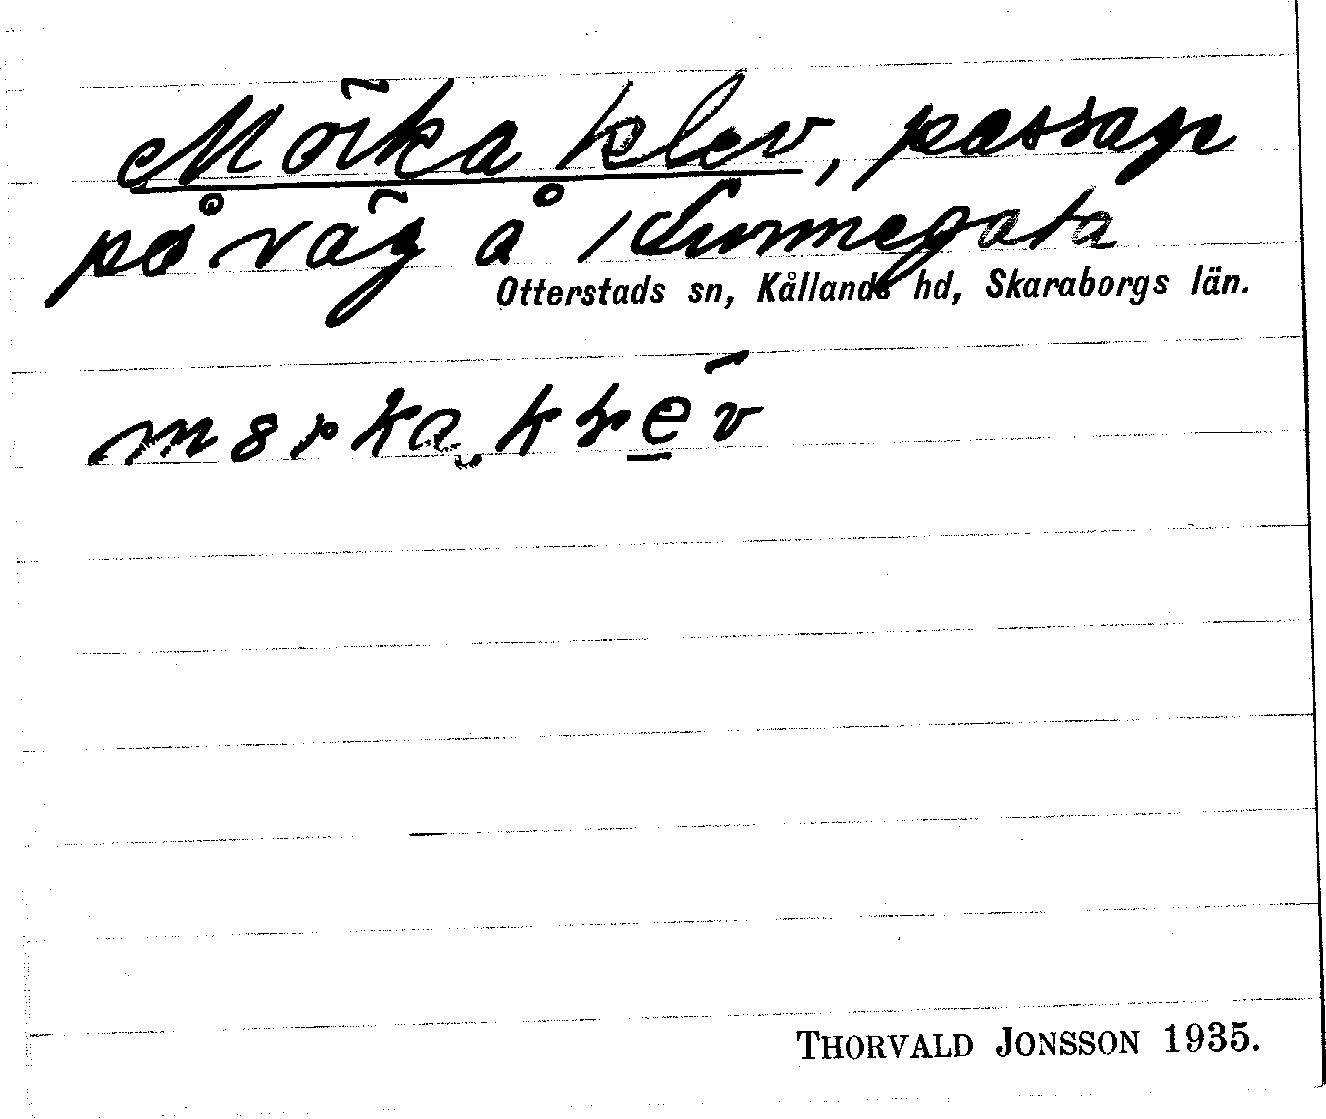 Mörka klev, passage
på väg å Kinnegata
Otterstads sn, Kållands hd, Skaraborgs län.
THORVALD JONSSON 1935.